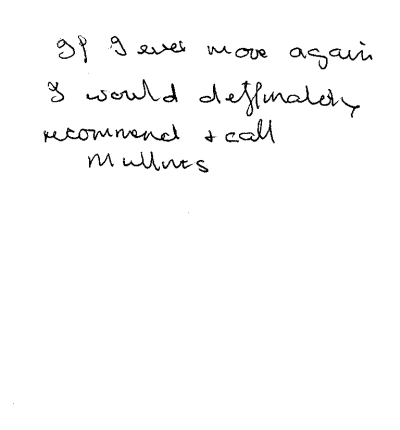 If I ever move again
I would deffinately
recommend + call
Mullins